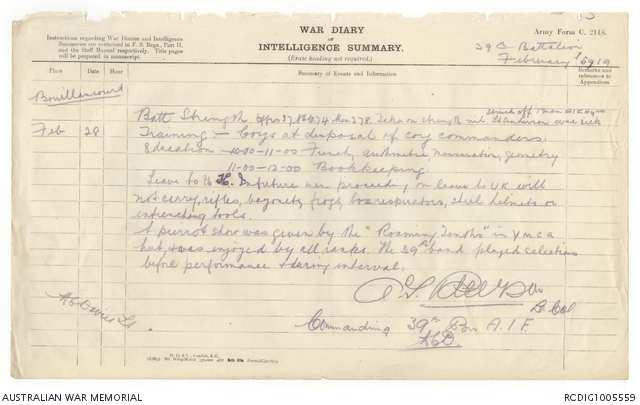 WAR DIARY
or
INTELLIGENCE SUMMARY.
(Erase heading not required.)
Army Form C. 2118.
Instructions regarding War Diaries and Intelligence
Summaries are contained in F. S. Regs., Part II.
and the Staff Manual respectively. Title pages
will be prepared in manuscript.
39th Battalion
February 1919
Place Date Hour Summary of Events and Information Remarks and
references to
Appendices
Feb 28 Batt Strength
Training — Coys at disposal of coy commanders
Education — 10-00-11-00 French, arithmetic, geometry
11-00-12-00 Bookkeeping
Leave to U.K. In future men proceeding on leave to UK will
not carry rifles, bayonets, frogs, box respirators, steel helmets or
entrenching tools.
A pierrot show was given by the "Roaming Tonths" in Y M C A
hut & was enjoyed by all ranks. The 39th band played selections
before performance & during interval.
Lt Col
Commanding 39th Bn A.I.F.
AUSTRALIAN WAR MEMORIAL
RCDIG1005559